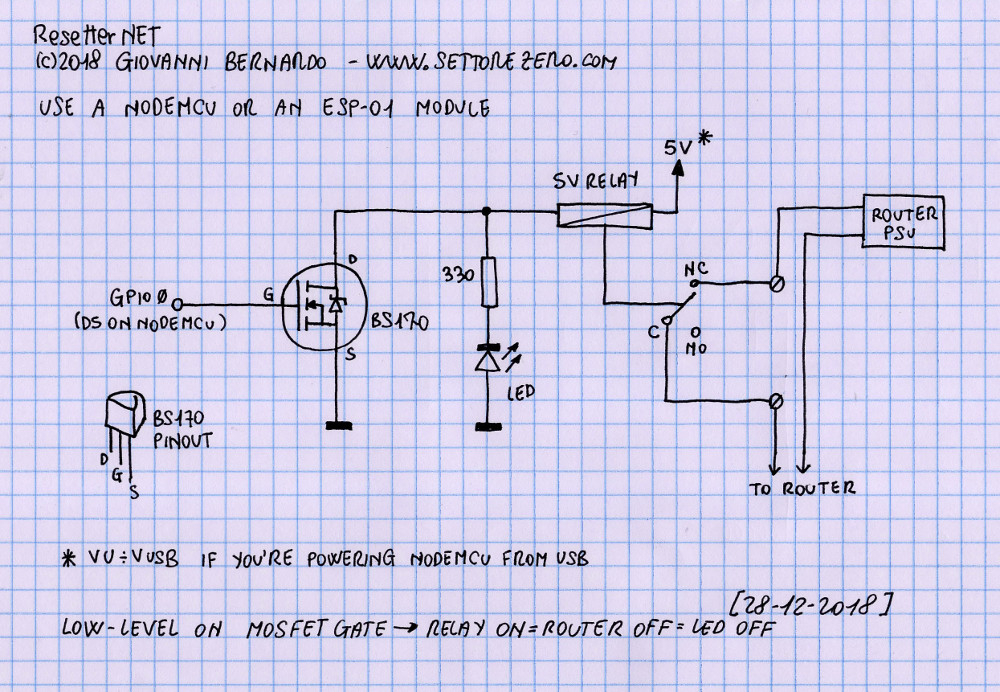 ResetterNET
(C)2018 GIOVANNI BERNARDO - WWW.SETTOREZERO.COM
USE A NODEMCU OR AN ESP-01 MODULE
5V *
5V RELAY
ROUTER
PSU
D
330
NC
GPIO 0
G
(D5 ON NODEMCU)
BS170
C
NO
S
LED
BS170
PINOUT
D
G
S
TO ROUTER
* VU ÷ VUSB IF YOU'RE POWERING NODEMCU FROM USB
[28-12-2018]
LOW-LEVEL ON MOSFET GATE → RELAY ON = ROUTER OFF = LED OFF